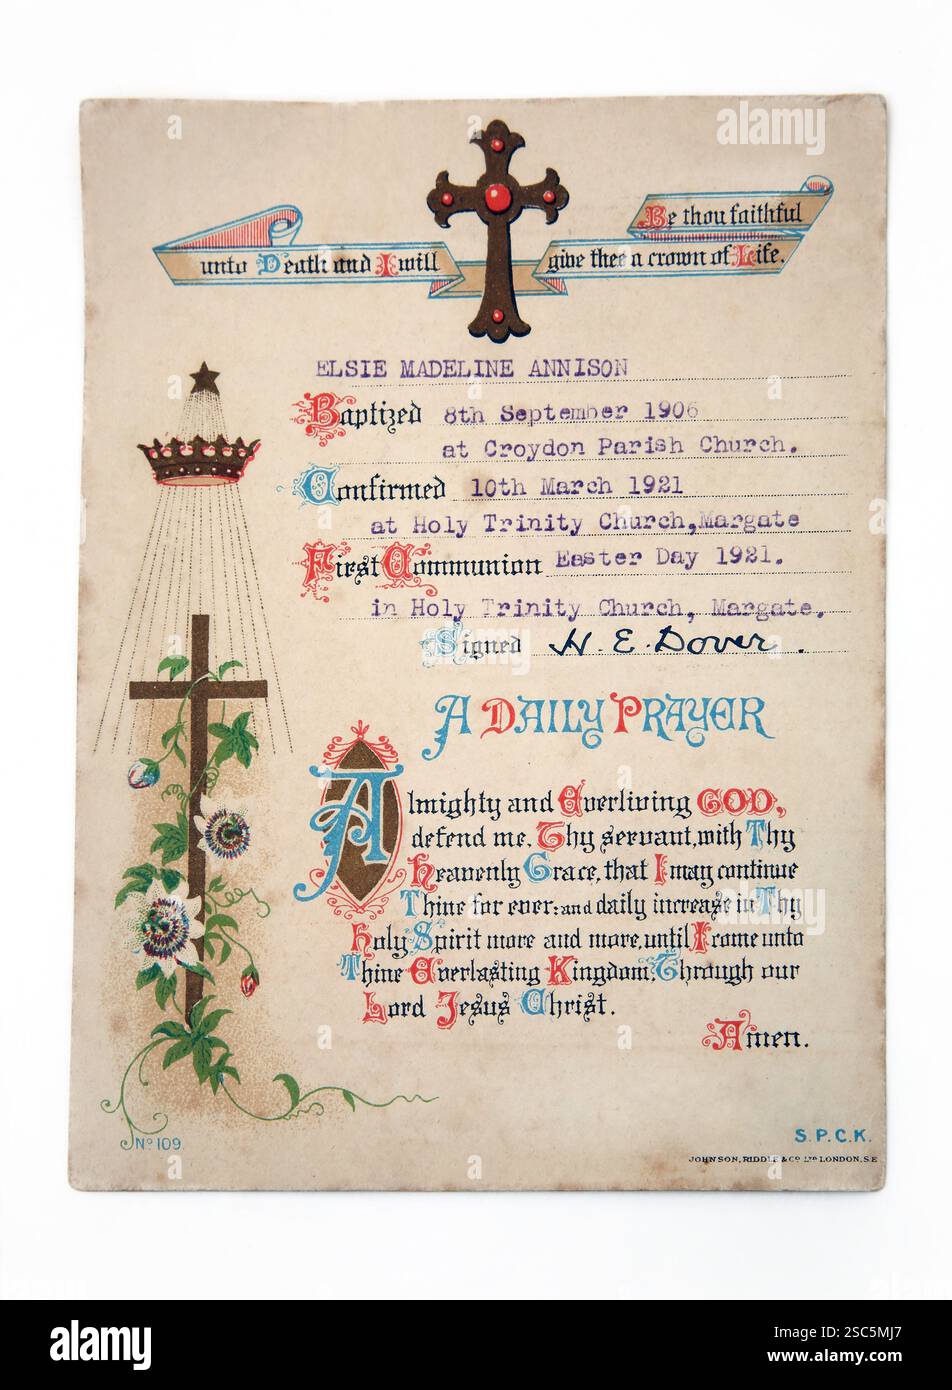 Be thou faithful
unto Death and I will give thee a crown of Life.
ELSIE MADELINE ANNISON
Baptized 8th September 1906
at Croydon Parish Church.
Confirmed 10th March 1921
at Holy Trinity Church,Margate
First Communion Easter Day 1921.
in Holy Trinity Church, Margate.
Signed H. E. Dover.
A DAILY PRAYER
Almighty and Everliving GOD,
defend me, Thy servant, with Thy
Heavenly Grace, that I may continue
Thine for ever: and daily increase in Thy
Holy Spirit more and more, until I come unto
Thine Everlasting Kingdom. Through our
Lord Jesus Christ.
Amen.
No 109.
S.P.C.K.
JOHNSON, RIDDLE & CO LTD LONDON, S.E
alamy
Image ID: 2SC5MJ7
www.alamy.com